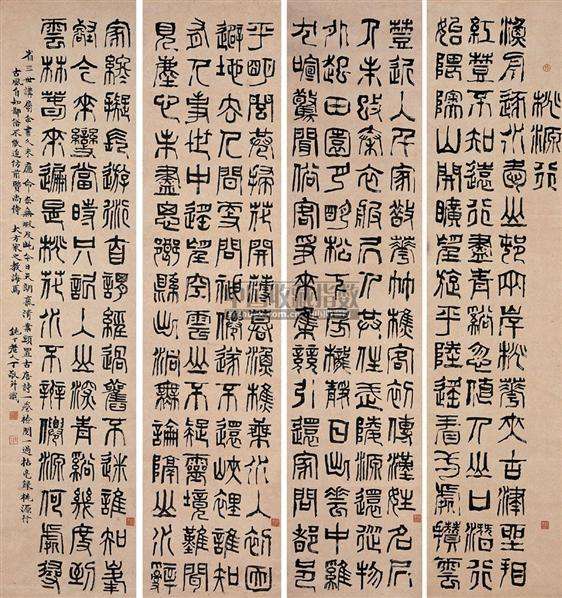 桃源行
漁舟逐水愛山春兩岸桃花夾古津坐看
紅樹不知遠行盡青谿忽值人山口潛行
始隈隩山開曠望旋平陸遙看一處攢雲
樹近入千家散花竹樵客初傳漢姓名居
人未改秦衣服居人共住武陵源還從物
外起田園月明松下房櫳靜日出雲中雞
犬喧驚聞俗客爭來集競引還家問都邑
平明閭巷掃花開薄暮漁樵乘水入初因
避地去人間更問神僊遂不還峽裡誰知
有人事世中遙望空雲山不疑靈境難聞
見塵心未盡思鄉縣出洞無論隔山水辭
家終擬長遊衍自謂經過舊不迷誰知峯
壑今來變當時只記入山深青谿幾度到
雲林春來遍是桃花水不辨僊源何處尋